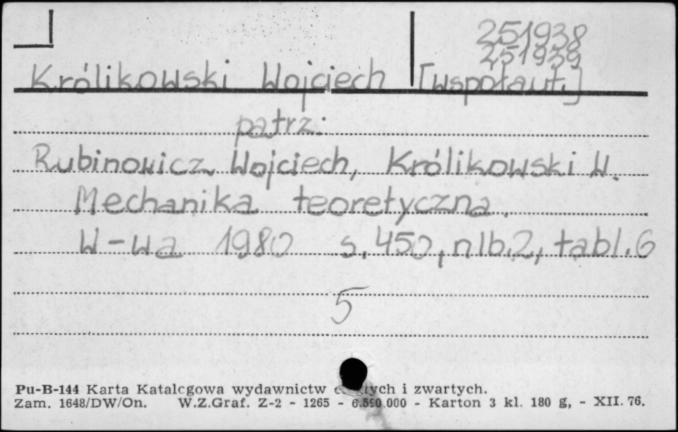 251938
251939
Królikowski Wojciech [współaut.]
patrz:
Rubinowicz Wojciech, Królikowski W.
Mechanika teoretyczna.
W-wa 1980 s. 450, nlb. 2, tabl. 6
5
Pu-B-144 Karta Katalogowa wydawnictw i zwartych.
Zam. 1648/DW/On. W.Z.Graf. Z-2 - 1265 - 6.590.000 - Karton 3 kl. 180 g, - XII. 76.